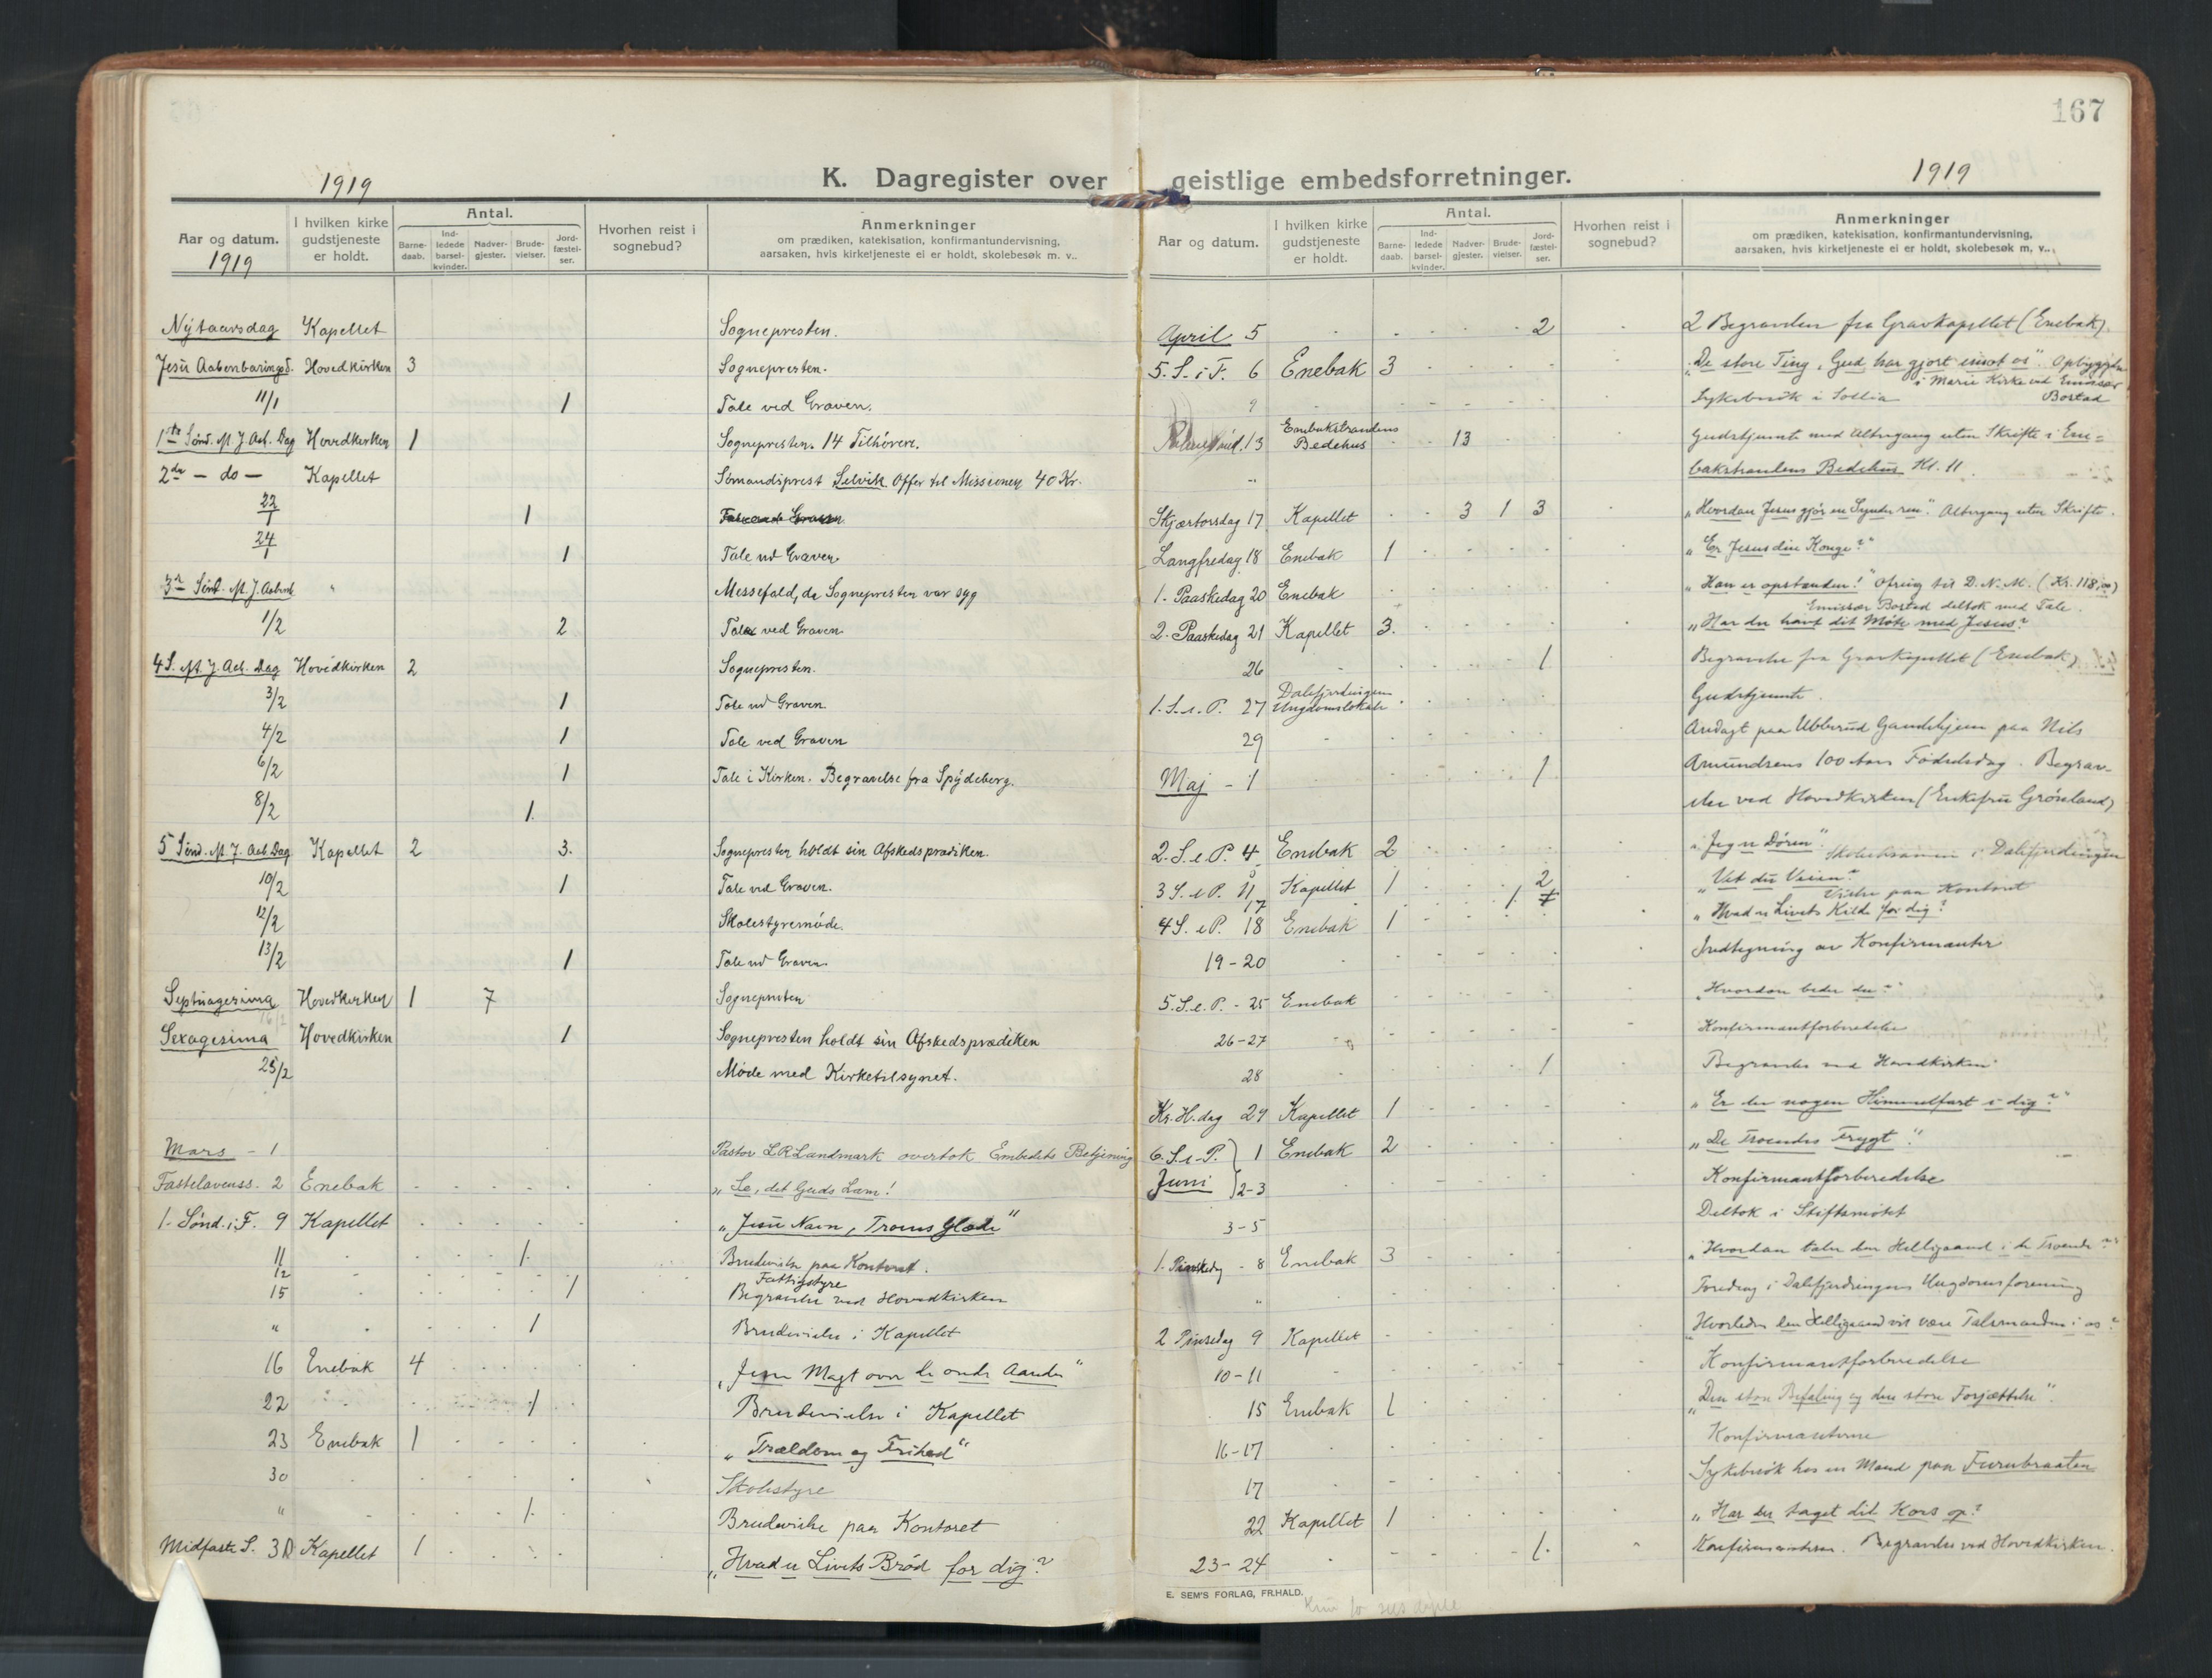 167
1919
K. Dagregister over geistlige embedsforretninger.
1919
Aar og datum.
1919
I hvilken kirke gudstjeneste er holdt.
Antal.
Barne-daab.
Ind-ledede barsel-kvinder.
Nadver-gjester.
Brude-vielser.
Jord-fæstel-ser.
Hvorhen reist i sognebud?
Anmerkninger
om prædiken, katekisation, konfirmantundervisning,
aarsaken, hvis kirketjeneste ei er holdt, skolebesøk m. v..
Nytaarsdag Kapellet Sognepresten.
Jesu Aabenbaringsd. Hovedkirken 3 Sognepresten.
11/1 1 Tale ved Graven.
1ste Sønd. M. J. Aab. Dag Hovedkirken 1 Sognepresten. 14 Tilhørere.
2den - do - Kapellet Sømandsprest Selvik Offer til Missionen 40 Kr.
22/1 1
24/1 1 Tale ved Graven.
3 Sønd. M. J. Aabenb. " Messefald, da Sognepresten var syg
1/2 2 Tale ved Graven
4 S. eft J. Aab. Dag Hovedkirken 2 Sognepresten.
3/2 1 Tale ved Graven.
4/2 1 Tale ved Graven
6/2 1 Tale i Kirken. Begravelse fra Spydeberg.
8/2 1.
5 Sønd. M J. Aab. Dag Kapellet 2 3. Sognepresten holdt sin Afskedsprædiken.
10/2 1 Tale ved Graven.
12/2 Skolestyremøde.
13/2 1 Tale ved Graven.
Septuagesima Hovedkirken 1 7 Sognepresten
16/2
Sexagesima Hovedkirken 1 Sognepresten holdt sin Afskedsprædiken
25/2 Møde med Kirketilsynet.
Mars - 1 Pastor L R Landmark overtok Embedets Betjening
Fastelavenss. 2 Enebak "Se, det Guds Lam!
1. Sønd. i F. 9 Kapellet "Jesu Navn, Troens Glæde"
11 1. Brudevielse paa Kontoret.
12 Fattigstyre
15 1 Begravelse ved Hovedkirken
" 1 Brudevielse i Kapellet
16 Enebak 4 "Jesu Magt over de onde Aander"
22 1 Brudevielse i Kapellet
23 Enebak 1 "Trældom og Frihed"
30 Skolestyre
" 1. Brudevielse paa Kontoret
Midfaste S. 30 Kapellet 1 "Hvad er Livets Brød for dig?
Aar og datum.
I hvilken kirke gudstjeneste er holdt.
Antal.
Barne-daab.
Ind-ledede barsel-kvinder.
Nadver-gjester.
Brude-vielser.
Jord-fæstel-ser.
Hvorhen reist i sognebud?
Anmerkninger
om prædiken, katekisation, konfirmantundervisning,
aarsaken, hvis kirketjeneste ei er holdt, skolebesøk m. v..
April 5 2 2 Begravelser fra Gravkapellet (Enebak).
5. S. i F. 6 Enebak 3 "De store Ting, Gud har gjort imot os".
i Marie Kirke ved Emissær
9 Sykebesøk i Sollia Bostad
Palmesønd. 13 Enebakstrandens Bedehus 13 Gudstjeneste med Altergang uten Skrifte i Ene=
" bakstrandens Bedehus Kl. 11.
Skjærtorsdag 17 Kapellet 3 1 3 "Hvordan Jesus gjør en Synder ren". Altergang uten Skrifte.
Langfredag 18 Enebak 1 "Er Jesus din Konge?"
1. Paaskedag 20 Enebak "Han er opstanden!" Ofring til D. N. M. (Kr. 118,00)
Emissær Bostad deltok med Tale.
2. Paaskedag 21 Kapellet 3. "Har du havt dit Møte med Jesus?
26 1 Begravelse fra Gravkapellet (Enebak)
1. S. e. P. 27 Dalefjerdingens Ungdomslokale Gudstjeneste.
29 Andagt paa Ubberud Gamlehjem paa Nils
Maj - 1 1 Amundsens 100 Aars Fødselsdag. Begrav-
else ved Hovedkirken (Enkefru Grønland)
2. S. e. P. 4 Enebak 2 "Jeg er Døren".
Skoleeksamen i Dalefjerdingen
3 S. e P. 11 Kapellet 1 2 "Vet du Veien?"
17 1. Vielse paa Kontoret
4 S. e P. 18 Enebak 1 "Hvad er Livets Kilde for dig?
19-20 Indtegning av Konfirmanter
5. S. e. P. - 25 Enebak "Hvordan beder du?"
26-27 Konfirmantforberedelse
28 1 Begravelse ved Hovedkirken
Kr. H. dag 29 Kapellet 1 "Er der nogen Himmelfart i dig?"
6. S. e. P. 1 Enebak 2 "De Troendes Frygt".
Juni 2-3 Konfirmantforberedelse
3-5 Deltok i Stiftsmøtet
1. Pinsedag - 8 Enebak 3 "Hvordan taler den Helligaand i de Troende?"
" Foredrag i Dalefjerdingens Ungdomsforening
2 Pinsedag 9 Kapellet "Hvorledes den Helligaand vil være Talsmanden i os?
10-11 Konfirmantforberedelse
15 Enebak 1 "Den store Befaling og den store Forjættelse".
16-17 Konfirmanterne
17 Sykebesøk hos en Mand paa Furubraaten
22 Kapellet 1 "Har du taget dit Kors op?
23-24 1. Begravelse ved Hovedkirken.
E. SEM'S FORLAG, FR.HALD.